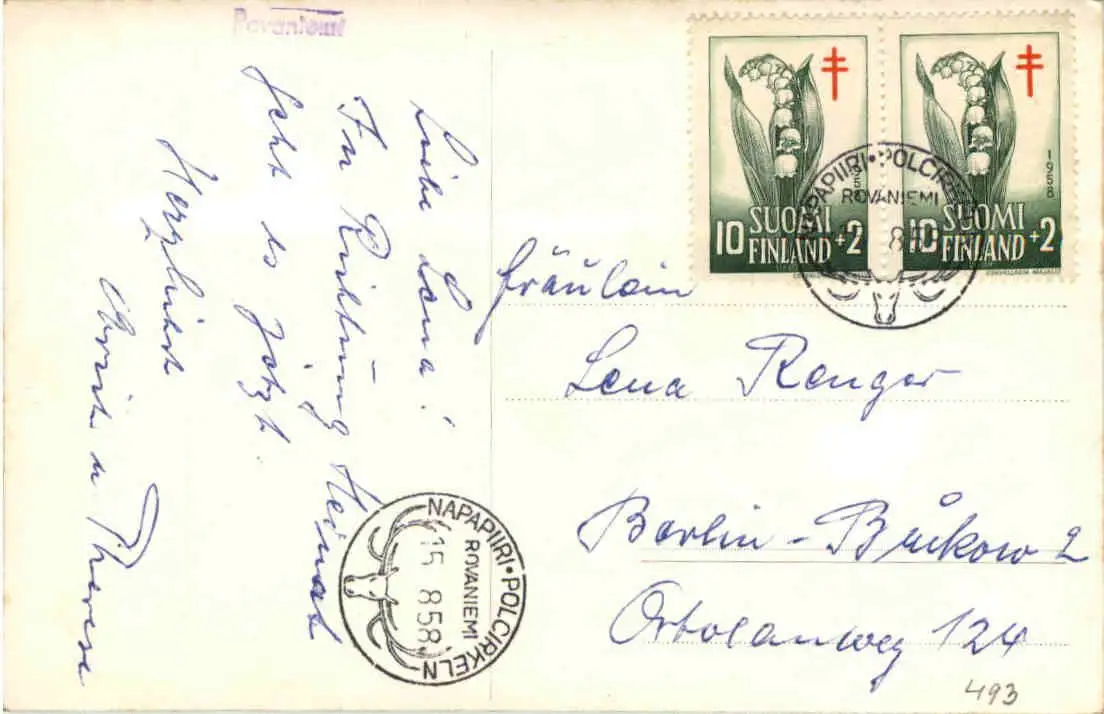 Rovaniemi
Liebe Lena!
In Richtung Heimat
geht es jetzt.
Herzlichst
Erich u Therese
Fräulein
Lena Renger
Berlin-Buckow 2
Ortolanweg 124
493
10 SUOMI FINLAND +2
1958
10 SUOMI FINLAND +2
1958
NAPAPIIRI·POLCIRKELN
ROVANIEMI
8 58
NAPAPIIRI·POLCIRKELN
ROVANIEMI
15 8 58